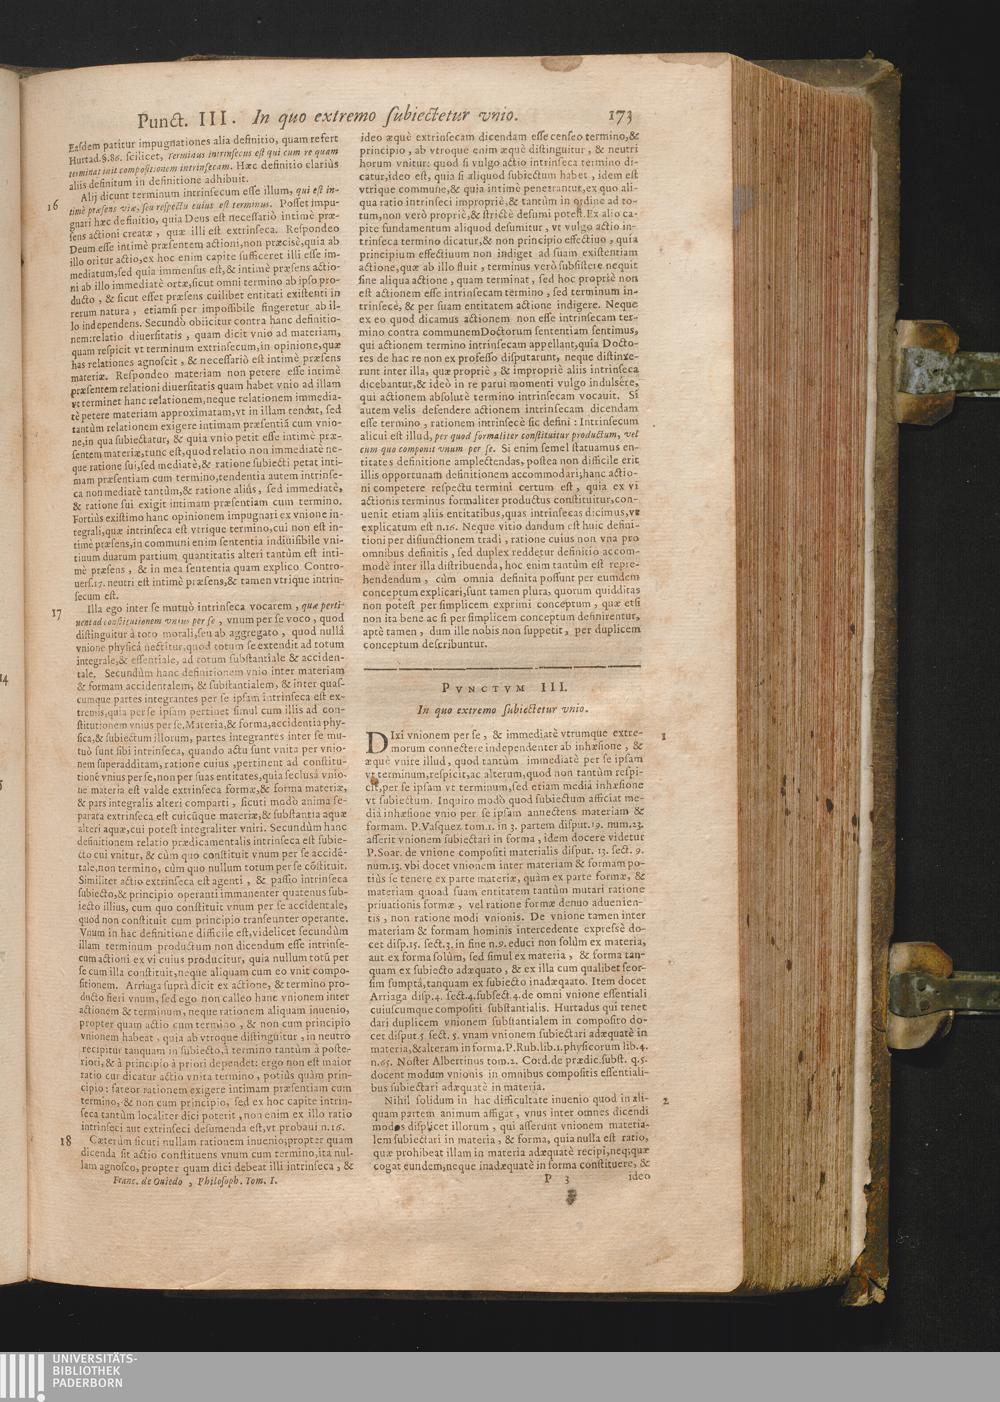 Punct. III. In quo extremo ſubiectetur vnio. 173
Eaſdem patitur impugnationes alia definitio, quam refert
Hurtad. §. 86. ſcilicet, Terminus intrinſecus eſt qui cum re quam
terminat init compoſitionem intrinſecam. Hæc definitio clariùs
aliis definitum in definitione adhibuit.
16 Alij dicunt terminum intrinſecum eſſe illum, qui eſt in-
timè præſens viæ, ſeu reſpectu cuius eſt terminus. Poſſet impu-
gnari hæc definitio, quia Deus eſt neceſſariò intimè præ-
ſens actioni creatæ, quæ illi eſt extrinſeca. Reſpondeo
Deum eſſe intimè præſentem actioni, non præcisè, quia ab
illo oritur actio, ex hoc enim capite ſufficeret illi eſſe im-
mediatum, ſed quia immenſus eſt, & intimè præſens actio-
ni ab illo immediatè ortæ, ſicut omni termino ab ipſo pro-
ducto, & ſicut eſſet præſens cuilibet entitati exiſtenti in
rerum natura, etiamſi per impoſſibile fingeretur ab il-
lo independens. Secundò obiicitur contra hanc definitio-
nem: relatio diuerſitatis, quam dicit vnio ad materiam,
quam reſpicit vt terminum extrinſecum, in opinione, quæ
has relationes agnoſcit, & neceſſariò eſt intimè præſens
materiæ. Reſpondeo materiam non petere eſſe intimè
præſentem relationi diuerſitatis quam habet vnio ad illam
vt terminet hanc relationem, neque relationem immedia-
tè petere materiam approximatam, vt in illam tendat, ſed
tantùm relationem exigere intimam præſentiã cum vnio-
ne, in qua ſubiectatur, & quia vnio petit eſſe intimè præ-
ſentem materiæ, tunc eſt, quod relatio non immediatè ne-
que ratione ſui, ſed mediatè, & ratione ſubiecti petat inti-
mam præſentiam cum termino, tendentia autem intrinſe-
ca non mediatè tantùm, & ratione aliùs, ſed immediatè,
& ratione ſui exigit intimam præſentiam cum termino.
Fortiùs exiſtimo hanc opinionem impugnari ex vnione in-
tegrali, quæ intrinſeca eſt vtrique termino, cui non eſt in-
timè præſens, in communi enim ſententia indiuiſibile vni-
tiuum duarum partium quantitatis alteri tantùm eſt inti-
mè præſens, & in mea ſententia quam explico Contro-
uerſ. 17. neutri eſt intimè præſens, & tamen vtrique intrin-
ſecum eſt.
17 Illa ego inter ſe mutuò intrinſeca vocarem, quæ perti-
nent ad conſtitutionem vnius per ſe, vnum per ſe voco, quod
diſtinguitur à toto morali, ſeu ab aggregato, quod nullâ
vnione phyſicâ nectitur, quod totum ſe extendit ad totum
integrale, & eſſentiale, ad totum ſubſtantiale & acciden-
tale. Secundùm hanc definitionem vnio inter materiam
& formam accidentalem, & ſubſtantialem, & inter quaſ-
cumque partes integrantes per ſe ipſam intrinſeca eſt ex-
tremis, quia per ſe ipſam pertinet ſimul cum illis ad con-
ſtitutionem vnius per ſe. Materia, & forma, accidentia phy-
ſica, & ſubiectum illorum, partes integrantes inter ſe mu-
tuò ſunt ſibi intrinſeca, quando actu ſunt vnita per vnio-
nem ſuperadditam, ratione cuius, pertinent ad conſtitu-
tionẽ vnius per ſe, non per ſuas entitates, quia ſecluſâ vnio-
ne materia eſt valde extrinſeca formæ, & forma materiæ,
& pars integralis alteri comparti, ſicuti modò anima ſe-
parata extrinſeca eſt cuicũque materiæ, & ſubſtantia aquæ
alteri aquæ, cui poteſt integraliter vniri. Secundùm hanc
definitionem relatio prædicamentalis intrinſeca eſt ſubie-
cto cui vnitur, & cùm quo conſtituit vnum per ſe accidẽ-
tale, non termino, cùm quo nullum totum per ſe cõſtituit.
Similiter actio extrinſeca eſt agenti, & paſſio intrinſeca
ſubiecto, & principio operanti immanenter quatenus ſub-
iecto illius, cum quo conſtituit vnum per ſe accidentale,
quod non conſtituit cum principio tranſeunter operante.
Vnum in hac definitione difficile eſt, videlicet ſecundùm
illam terminum productum non dicendum eſſe intrinſe-
cum actioni ex vi cuius producitur, quia nullum totũ per
ſe cum illa conſtituit, neque aliquam cum eo vnit compo-
ſitionem. Arriaga ſuprà dicit ex actione, & termino pro-
ducto fieri vnum, ſed ego non calleo hanc vnionem inter
actionem & terminum, neque rationem aliquam inuenio,
propter quam actio cum termino, & non cum principio
vnionem habeat, quia ab vtroque diſtinguitur, in neutro
recipitur tanquam in ſubiecto, à termino tantùm à poſte-
riori, & à principio à priori dependet: ergo non eſt maior
ratio cur dicatur actio vnita termino, potiùs quàm prin-
cipio: fateor rationem exigere intimam præſentiam cum
termino, & non cum principio, ſed ex hoc capite intrin-
ſeca tantùm localiter dici poterit, non enim ex illo ratio
intrinſeci aut extrinſeci deſumenda eſt, vt probaui n. 16.
18 Cæterùm ſicuti nullam rationem inuenio, propter quam
dicenda ſit actio conſtituens vnum cum termino, ita nul-
lam agnoſco, propter quam dici debeat illi intrinſeca, &
Franc. de Ouiedo, Philoſoph. Tom. I.
ideo æquè extrinſecam dicendam eſſe cenſeo termino, &
principio, ab vtroque enim æquè diſtinguitur, & neutri
horum vnitur: quod ſi vulgo actio intrinſeca termino di-
catur, ideo eſt, quia ſi aliquod ſubiectum habet, idem eſt
vtrique commune, & quia intimè penetrantur, ex quo ali-
qua ratio intrinſeci impropriè, & tantùm in ordine ad to-
tum, non verò propriè, & ſtrictè deſumi poteſt. Ex alio ca-
pite fundamentum aliquod deſumitur, vt vulgo actio in-
trinſeca termino dicatur, & non principio effectiuo, quia
principium effectiuum non indiget ad ſuam exiſtentiam
actione, quæ ab illo fluit, terminus verò ſubſiſtere nequit
ſine aliqua actione, quam terminat, ſed hoc propriè non
eſt actionem eſſe intrinſecam termino, ſed terminum in-
trinſecè, & per ſuam entitatem actione indigere. Neque
ex eo quod dicamus actionem non eſſe intrinſecam ter-
mino contra communem Doctorum ſententiam ſentimus,
qui actionem termino intrinſecam appellant, quia Docto-
res de hac re non ex profeſſo diſputarunt, neque diſtinxe-
runt inter illa, quæ propriè, & impropriè aliis intrinſeca
dicebantur, & ideò in re parui momenti vulgo indulſêre,
qui actionem abſolutè termino intrinſecam vocauit. Si
autem velis defendere actionem intrinſecam dicendam
eſſe termino, rationem intrinſecè ſic defini: Intrinſecum
alicui eſt illud, per quod formaliter conſtituitur productum, vel
cum quo componit vnum per ſe. Si enim ſemel ſtatuamus en-
titates definitione amplectendas, poſtea non difficile erit
illis opportunam definitionem accommodari; hanc actio-
ni competere reſpectu termini certum eſt, quia ex vi
actionis terminus formaliter productus conſtituitur, con-
uenit etiam aliis entitatibus, quas intrinſecas dicimus, vt
explicatum eſt n. 16. Neque vitio dandum eſt huic defini-
tioni per diſiunctionem tradi, ratione cuius non vna pro
omnibus definitis, ſed duplex reddetur definitio accom-
modè inter illa diſtribuenda, hoc enim tantùm eſt repre-
hendendum, cùm omnia definita poſſunt per eumdem
conceptum explicari, ſunt tamen plura, quorum quidditas
non poteſt per ſimplicem exprimi conceptum, quæ etſi
non ita bene ac ſi per ſimplicem conceptum definirentur,
aptè tamen, dum ille nobis non ſuppetit, per duplicem
conceptum deſcribuntur.
PVNCTVM III.
In quo extremo ſubiectetur vnio.
DIxi vnionem per ſe, & immediatè vtrumque extre- 1
morum connectere independenter ab inhæſione, &
æquè vnire illud, quod tantùm immediatè per ſe ipſam
vt terminum, reſpicit, ac alterum, quod non tantùm reſpi-
cit, per ſe ipſam vt terminum, ſed etiam mediâ inhæſione
vt ſubiectum. Inquiro modò quod ſubiectum afficiat me-
diâ inhæſione vnio per ſe ipſam annectens materiam &
formam. P. Vaſquez tom. 1. in 3. partem diſput. 19. num. 23.
aſſerit vnionem ſubiectari in forma, idem docere videtur
P. Soar. de vnione compoſiti materialis diſput. 13. ſect. 9.
num. 13. vbi docet vnionem inter materiam & formam po-
tiùs ſe tenere ex parte materiæ, quàm ex parte formæ, &
materiam quoad ſuam entitatem tantùm mutari ratione
priuationis formæ, vel ratione formæ denuo aduenien-
tis, non ratione modi vnionis. De vnione tamen inter
materiam & formam hominis intercedente expreſsè do-
cet diſp. 15. ſect. 3. in fine n. 9. educi non ſolùm ex materia,
aut ex forma ſolùm, ſed ſimul ex materia, & forma tan-
quam ex ſubiecto adæquato, & ex illa cum qualibet ſeor-
ſim ſumptâ, tanquam ex ſubiecto inadæquato. Item docet
Arriaga diſp. 4. ſect. 4. ſubſect. 4. de omni vnione eſſentiali
cuiuſcumque compoſiti ſubſtantialis. Hurtadus qui tenet
dari duplicem vnionem ſubſtantialem in compoſito do-
cet diſput 5 ſect. 5. vnam vnionem ſubiectari adæquatè in
materia, & alteram in forma. P. Rub. lib. 1. phyſicorum lib. 4.
n. 65. Noſter Albertinus tom. 2. Corol. de prædic. ſubſt. q. 5.
docent modum vnionis in omnibus compoſitis eſſentiali-
bus ſubiectari adæquatè in materia.
Nihil ſolidum in hac difficultate inuenio quod in ali- 2
quam partem animum affigat, vnus inter omnes dicendi
modos diſplicet illorum, qui aſſerunt vnionem materia-
lem ſubiectari in materia, & forma, quia nulla eſt ratio,
quæ prohibeat illam in materia adæquatè recipi, neq; quæ
cogat eundem, neque inadæquatè in forma conſtituere, &
P 3 ideo
UNIVERSITÄTS-
BIBLIOTHEK
PADERBORN